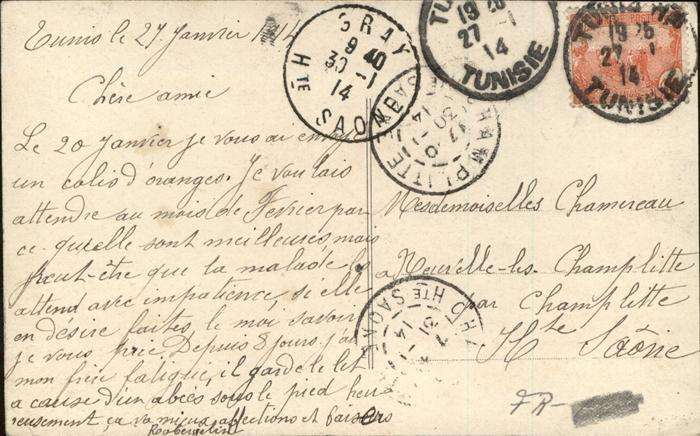 Tunis le 27 Janvier 1914
Chère amie
Le 20 Janvier je vous ai envoyé
un colis d'oranges. Je voulais
attendre au mois de Fevrier par
ce qu'elle sont meilleures, mais
peut-être que la malade l'
attend avec impatience, si elle
en désire faites le moi savoir
je vous prie. Depuis 8 jours j'ai
mon frère fatigué, il garde le lit
a cause d'un abcès sous le pied heu
reusement ça va mieux affections et baisers
GRAY
9 40
30 -1
14
HTE SAONE
TUNIS
19
27 -1
14
TUNISIE
TUNIS
19
27 -1
14
TUNISIE
CHAMPLITTE
17
30 -1
14
HTE SAONE
Mesdemoiselles Chamereau
a Neuvelle-les-Champlitte
par Champlitte
Hte Saône
CHAMPLITTE
7
31 -1
14
HTE SAONE
FR-